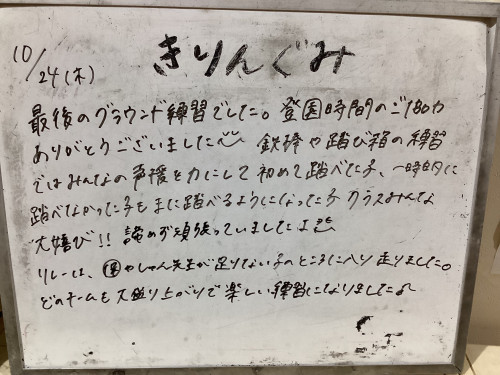 10/24(木)
きりんぐみ
最後のグラウンド練習でした。登園時間のご協力
ありがとうございました 鉄棒や踏び箱の練習
ではみんなの声援を力にして初めて踏べた子、一時的に
踏べなかった子もまた踏べるようになった子 クラスみんな
大嬉び!! 諦めず頑張っていましたよ
リレーは、 やしゃん先生が足りない子のところに入り走りました。
どのチームも大盛り上がりで楽しい練習になりました♪